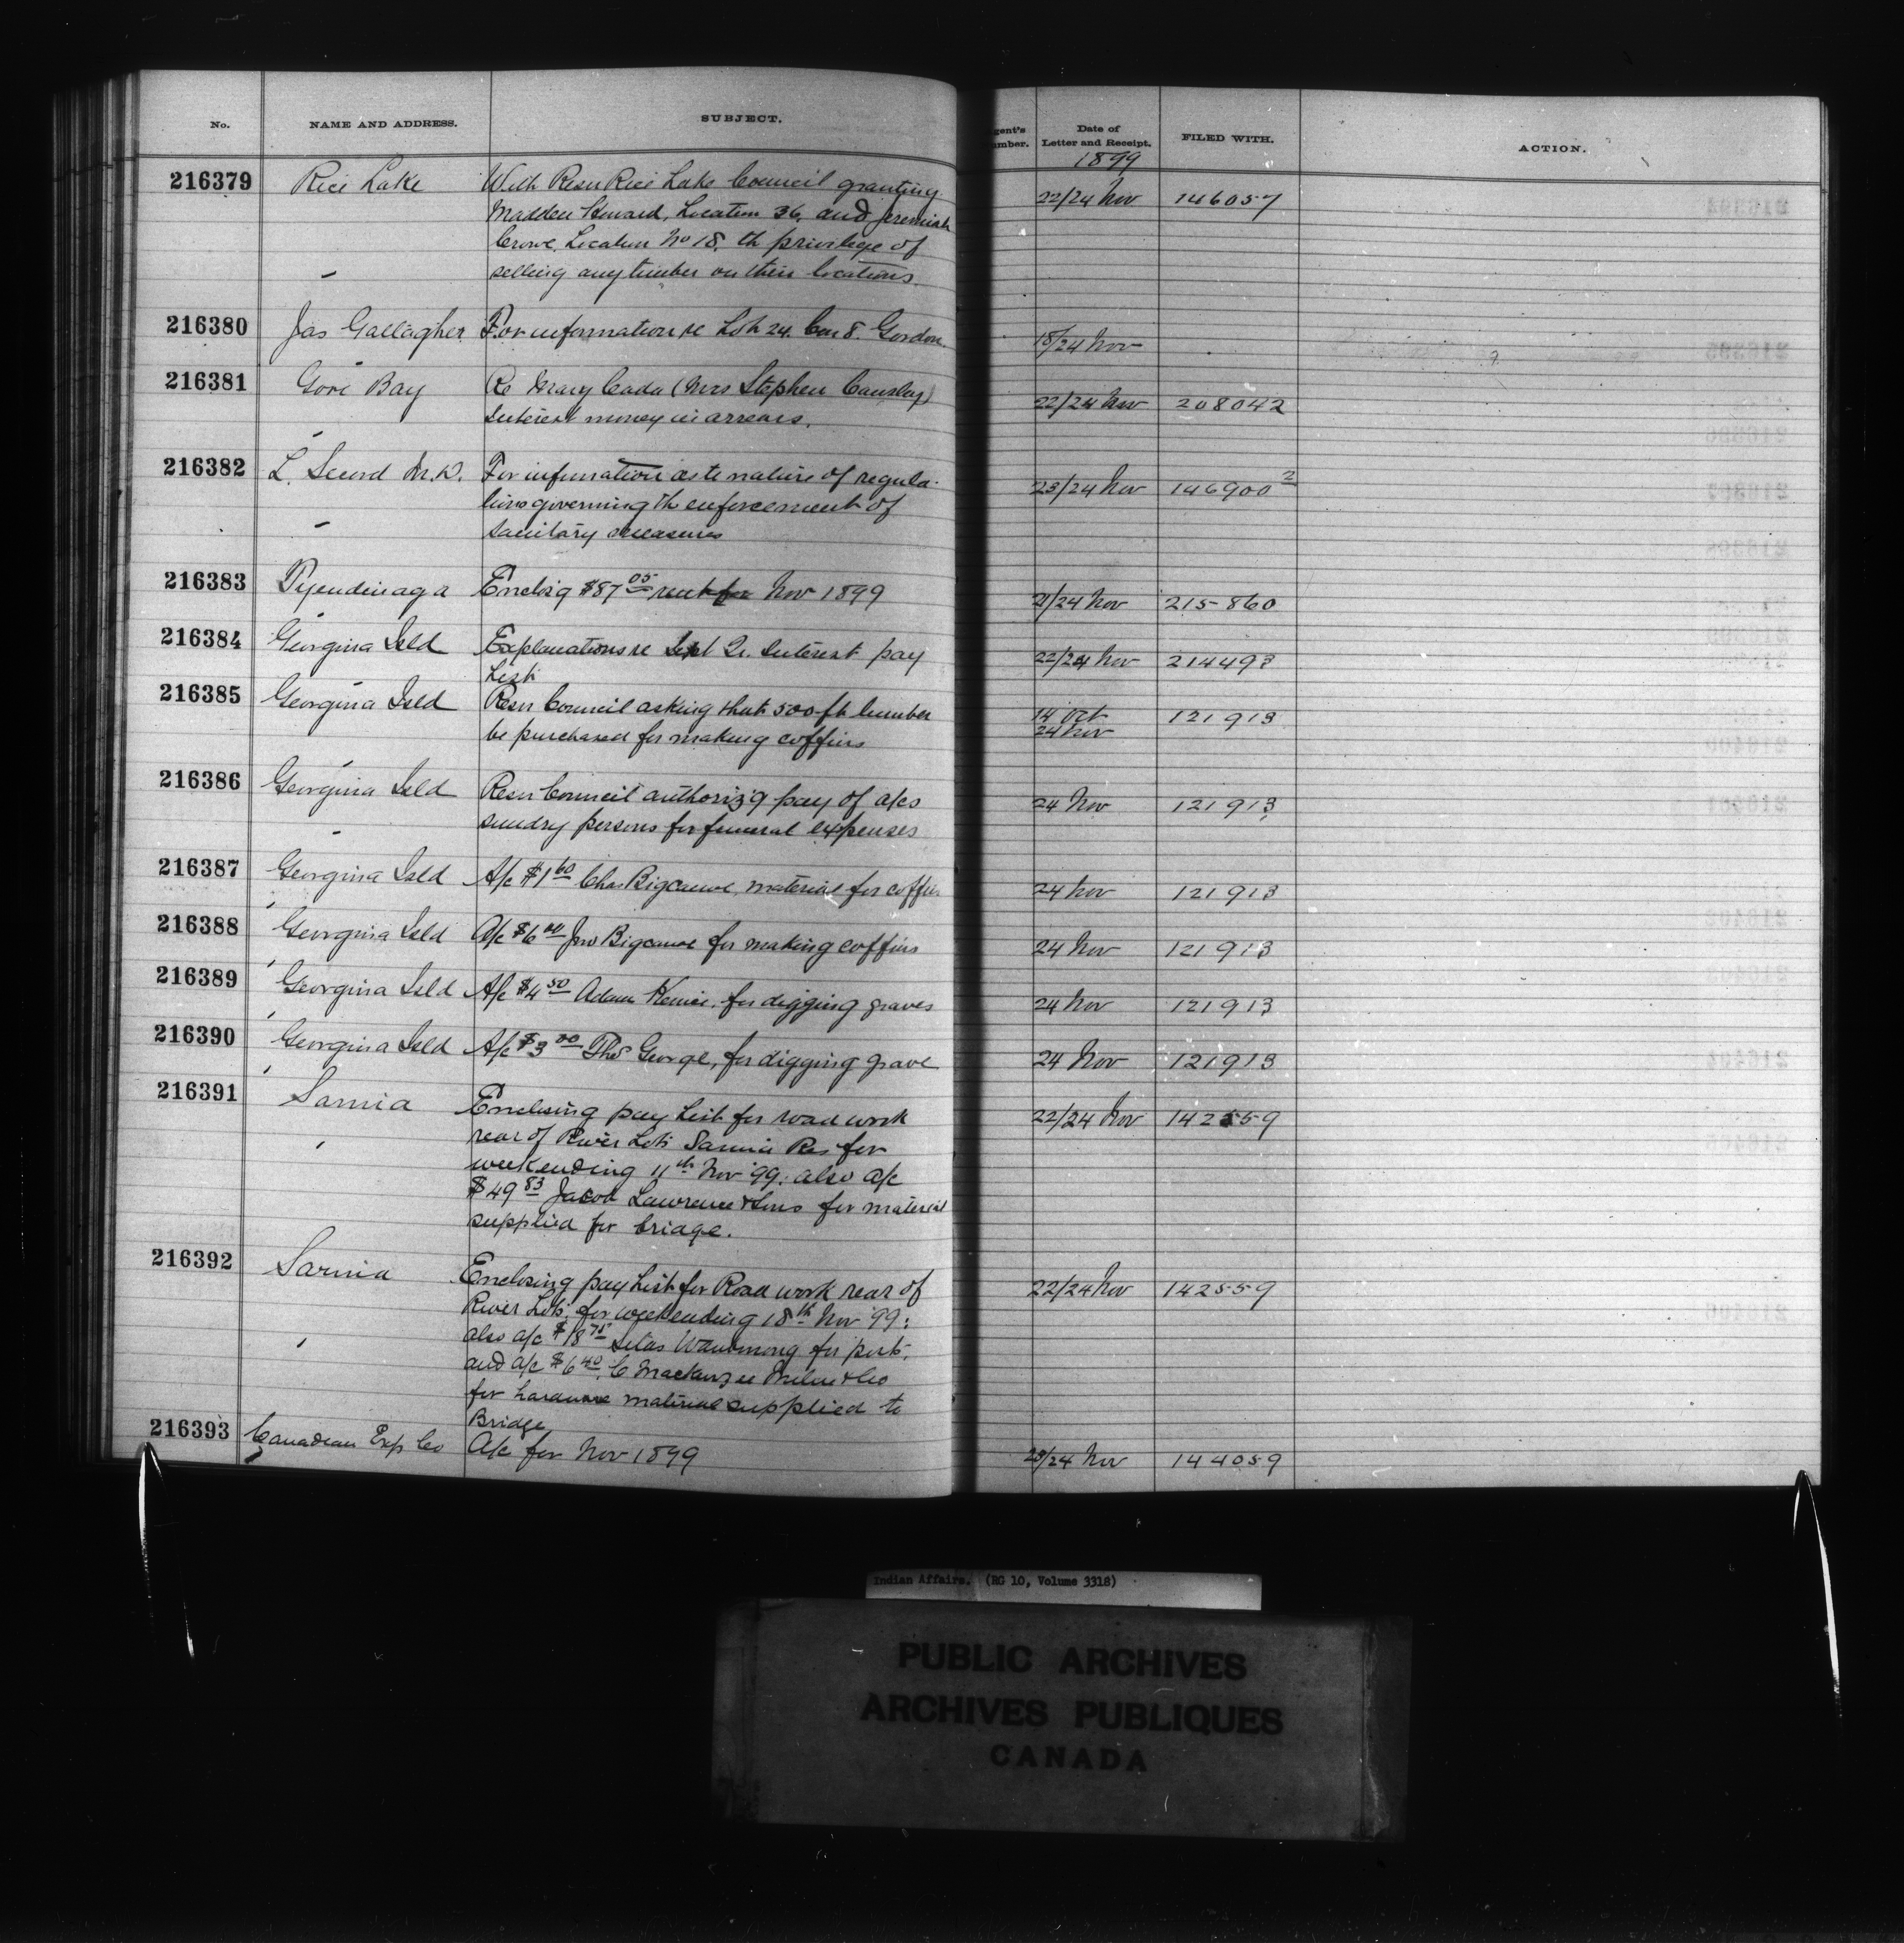 No. NAME AND ADDRESS. SUBJECT. Agent's Number. Date of Letter and Receipt. FILED WITH. ACTION.
1899
216379 Rice Lake With Resn Rice Lake Council granting 22/24 Nov 146057
Madden Howard, Location 36, and Jeremiah
Crowe, Location No 18, th privilege of
selling any timber on their locations.
216380 Jas Gallagher For information re Lot 24. Con 8. Gordon. 18/24 Nov
216381 Gore Bay Re Mary Cada (Mrs Stephen Cansley) 22/24 Nov 208042
Interest money in arrears.
216382 L. Secord M.D. For information as to nature of regula- 23/24 Nov 146900 2
tions governing th enforcement of
sanitary measures
216383 Tyendinaga Enclos'g $87 05 rent for Nov 1899 21/24 Nov 215860
216384 Georgina Isld Explanations re Sept Qr. Interest pay 22/24 Nov 214493
List
216385 Georgina Isld Resn Council asking that 500 ft lumber 14 Oct 121913
be purchased for making coffins 24 Nov
216386 Georgina Isld Resn Council authoriz'g pay of a/cs 24 Nov 121913
sundry persons for funeral expenses
216387 Georgina Isld A/c $1 60 Chas Bigcanoe material for coffins 24 Nov 121913
216388 Georgina Isld A/c $6 00 Jno Bigcanoe for making coffins 24 Nov 121913
216389 Georgina Isld A/c $4 50 Adam for digging graves 24 Nov 121913
216390 Georgina Isld A/c $3 00 Thos George, for digging grave 24 Nov 121913
216391 Sarnia Enclosing pay List for road work 22/24 Nov 142559
rear of River Lots Sarnia Res for
week ending 11th Nov '99: also a/c
$49 83 Jacob Lawrence & Sons for material
supplied for bridge.
216392 Sarnia Enclosing pay List for Road work rear of 22/24 Nov 142559
River Lots, for week ending 18th Nov '99:
also a/c $18 75 Silas for
and a/c $6 40, C Mackenzie Milne & Co
for hardware material supplied to
Bridge
216393 Canadian Exp Co A/c for Nov 1899 23/24 Nov 144059
Indian Affairs. (RG 10, Volume 3318)
PUBLIC ARCHIVES
ARCHIVES PUBLIQUES
CANADA